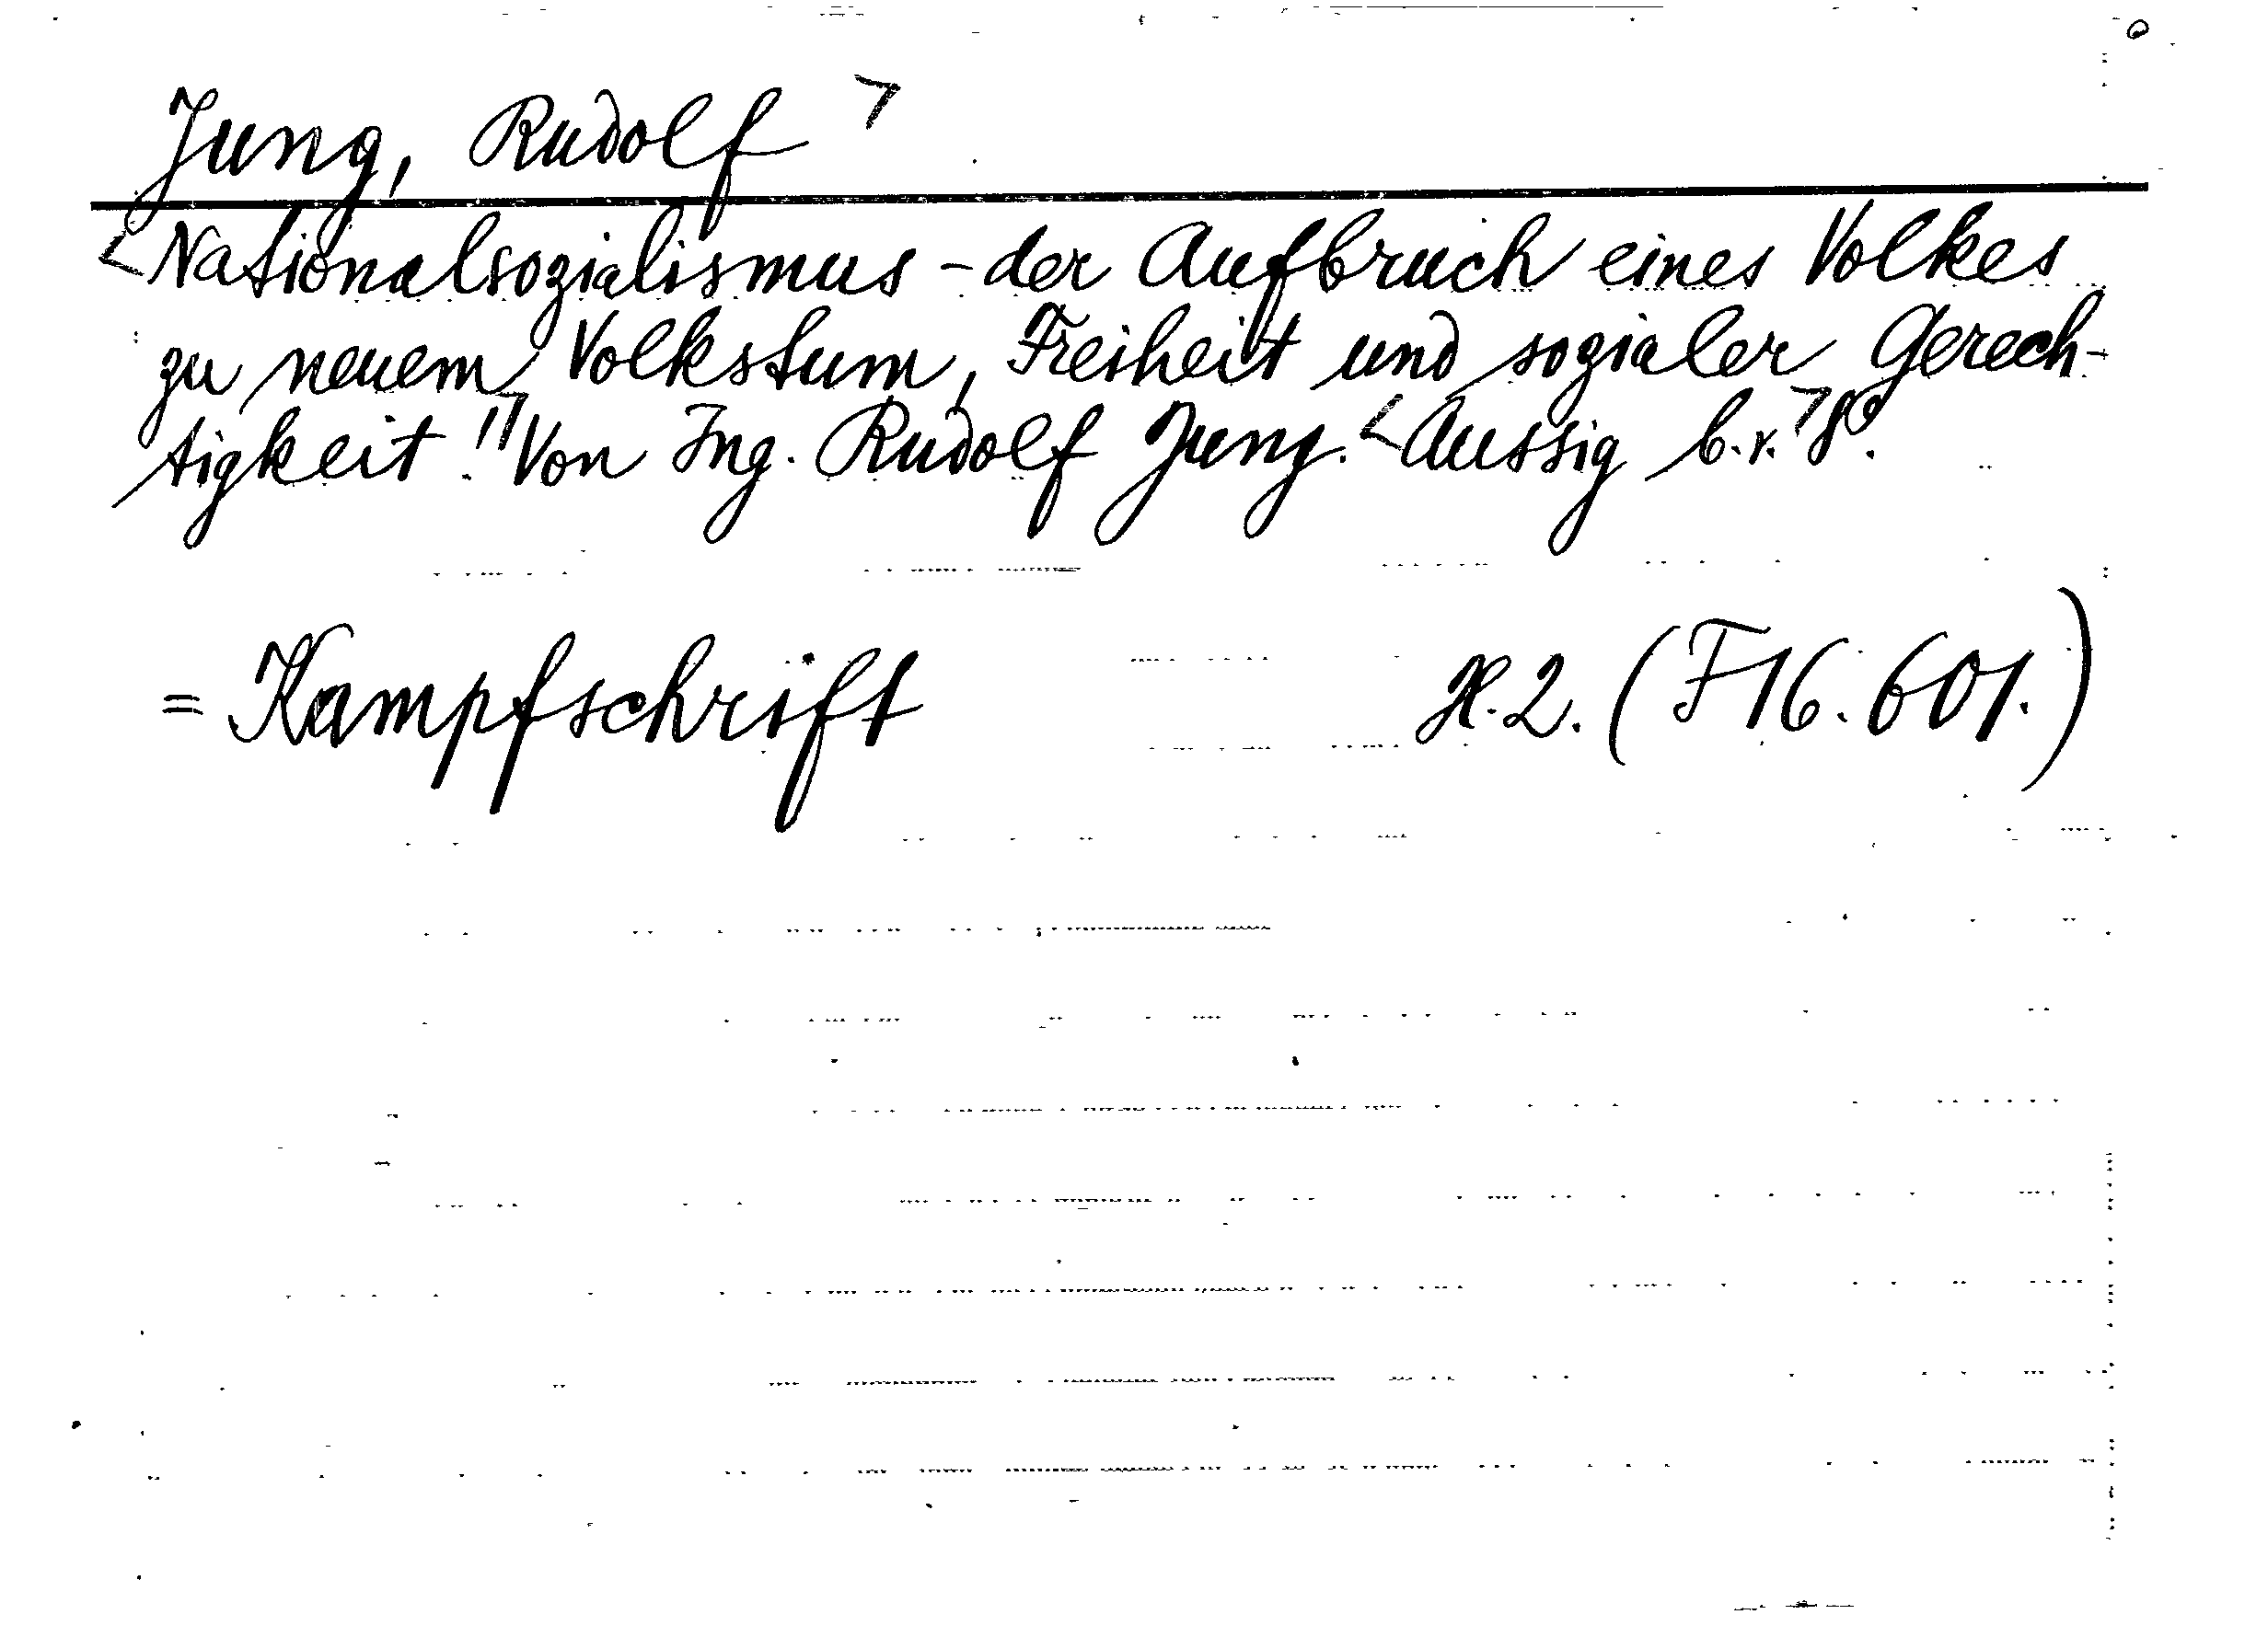 Jung, Rudolf
Nationalsozialismus - der Aufbruch eines Volkes
zu neuem Volkstum, Freiheit und sozialer Gerech-
tigkeit! Von Ing. Rudolf Jung. Aussig b.r. 8°.
= Kampfschrift H.2. (F16.601.)